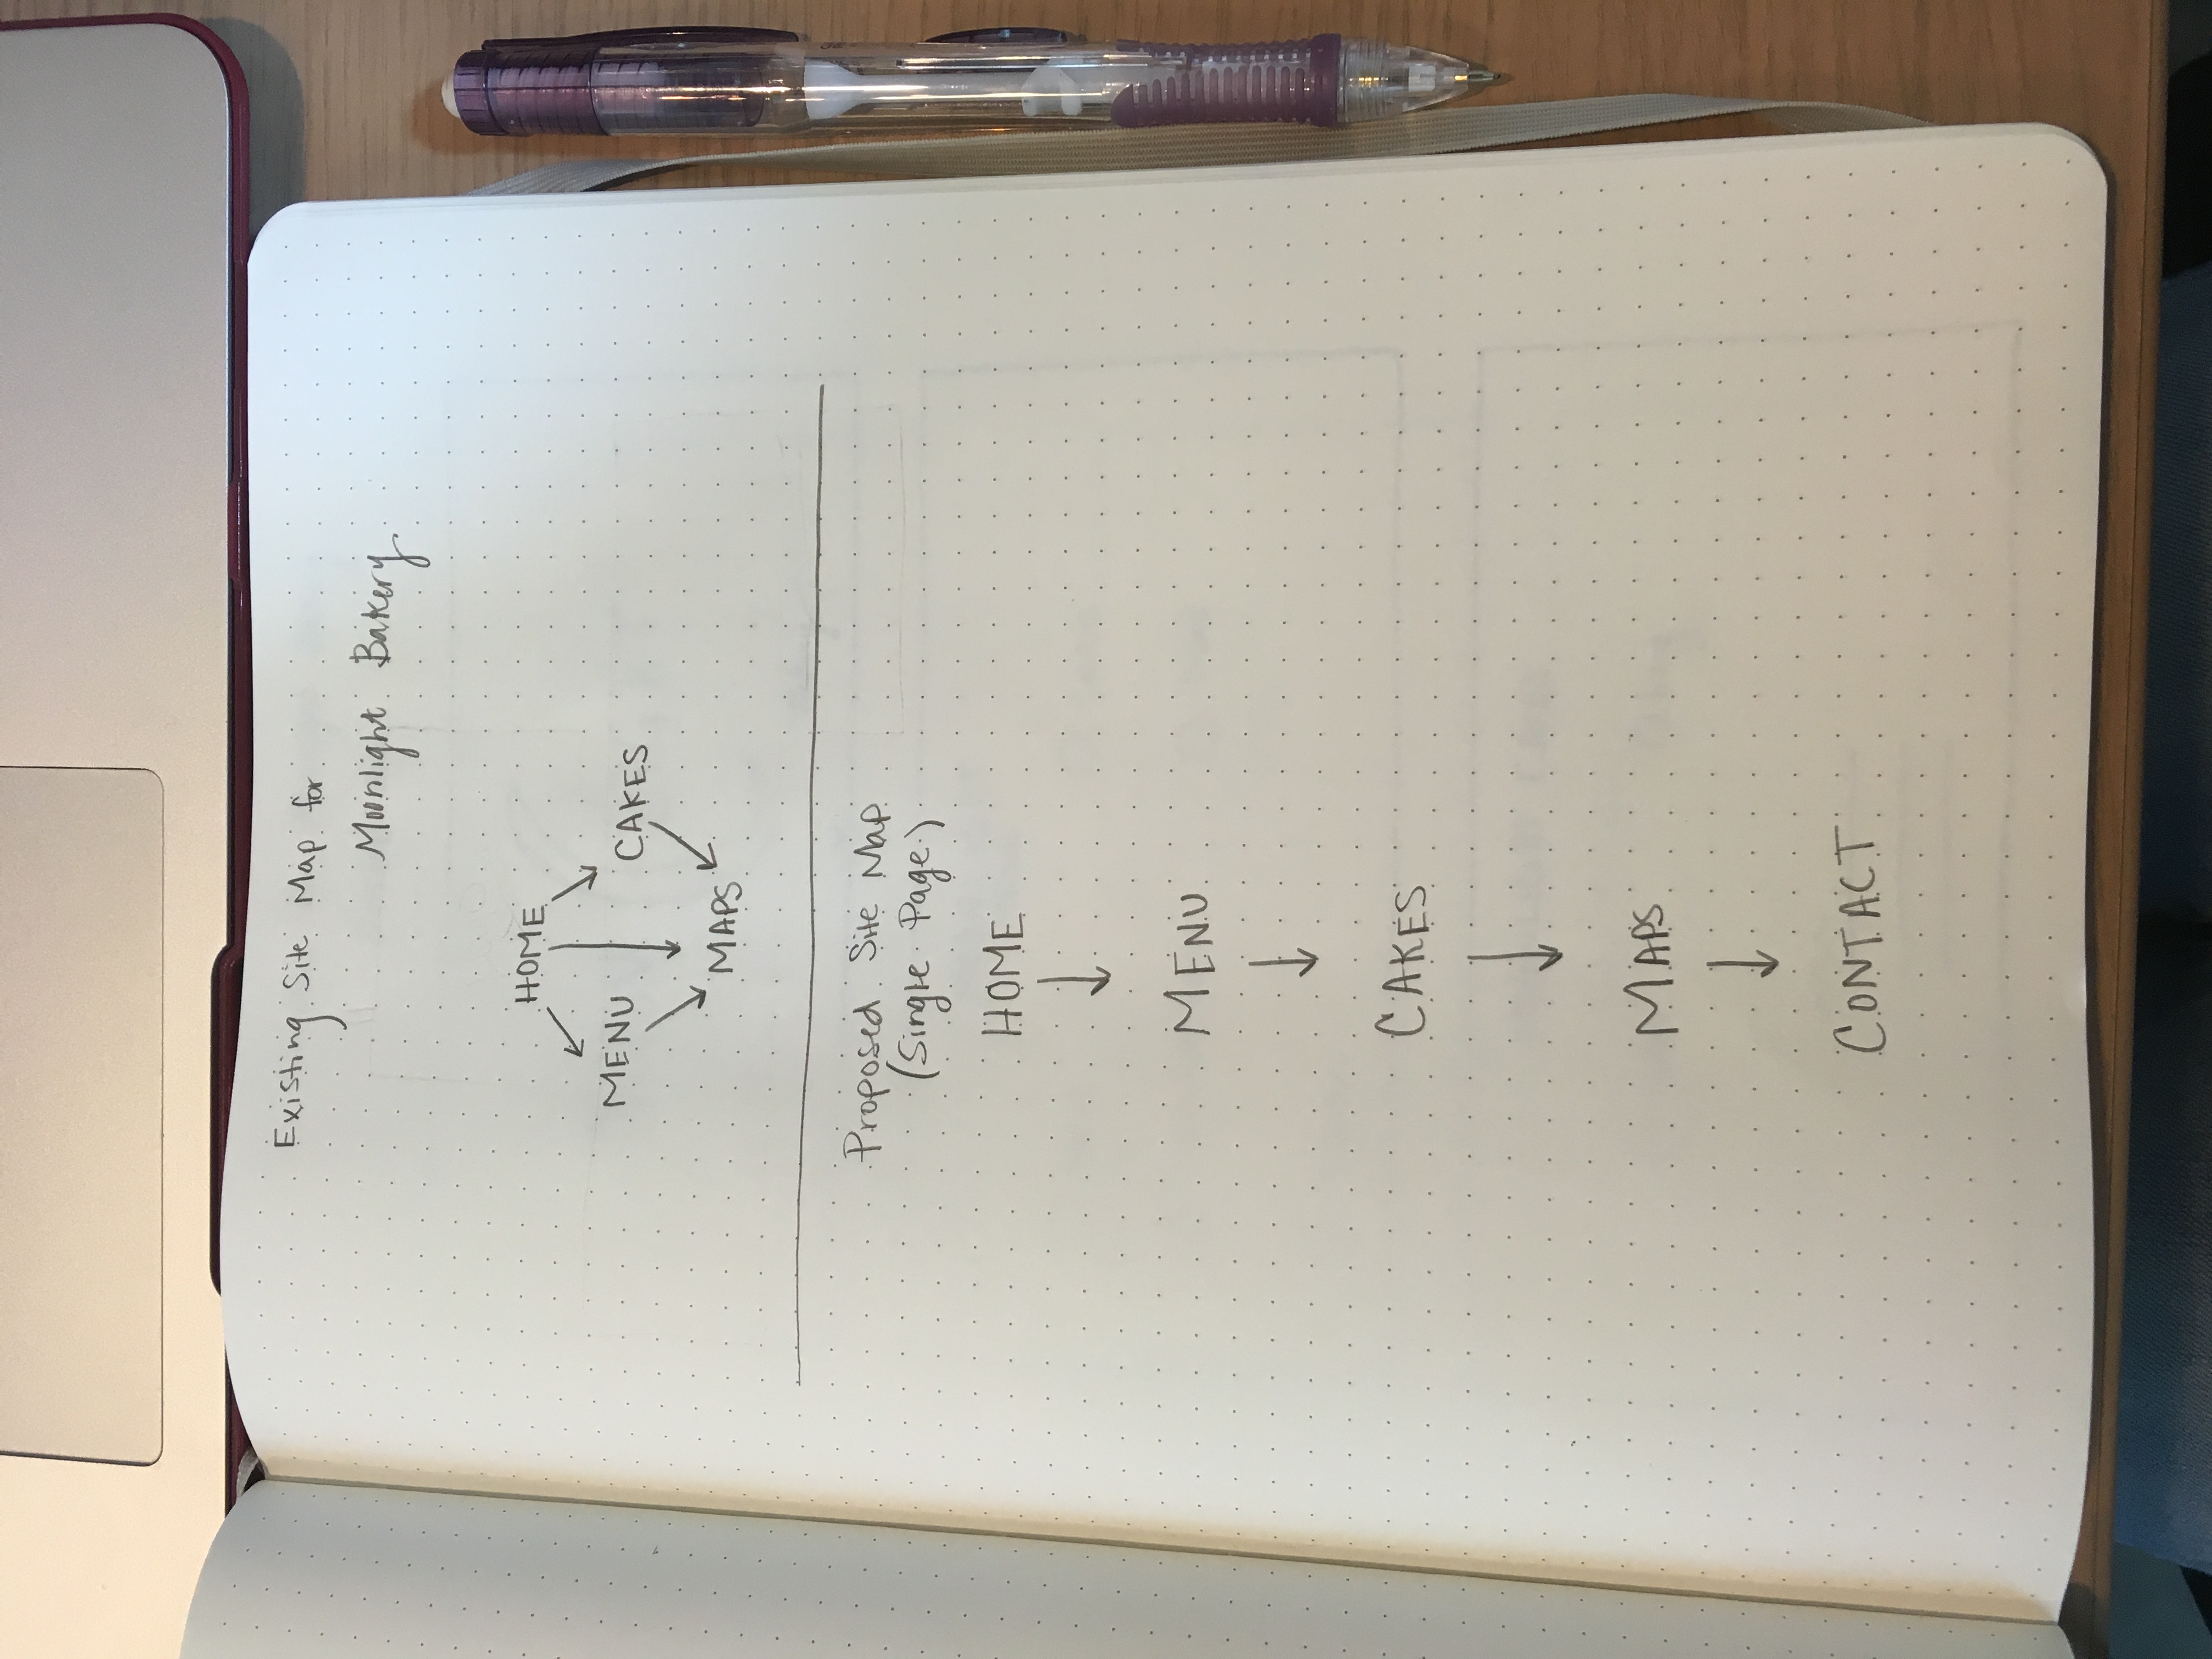 Existing Site Map for
Moonlight Bakery
HOME
MENU
CAKES
MAPS
Proposed Site Map
(Single Page)
HOME
MENU
CAKES
MAPS
CONTACT